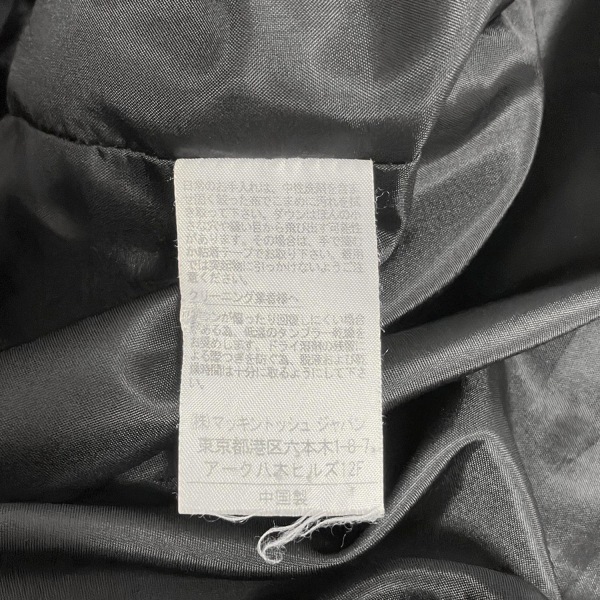 日常のお手入れは、中性洗剤を含ま
せ固く絞った布でこまめに汚れを拭
き取って下さい。ダウンはほんの小
さな穴や縫い目から飛び出す可能性
があります。その場合は、手で揉む
か粘着テープでお取り下さい。着用
では突起物に引っかけないようご注
意ください。
クリーニング業者様へ
ダウンが偏ったり回復しにくい場合
がある為、低温のタンブラー乾燥を
お奨めします。ドライ溶剤の残留に
よる際つきを防ぐ為、脱液および乾
燥時間は十分に取るようにして下さ
い。
㈱マッキントッシュ ジャパン
東京都港区六本木1-8-7
アーク八木ヒルズ12F
中国製